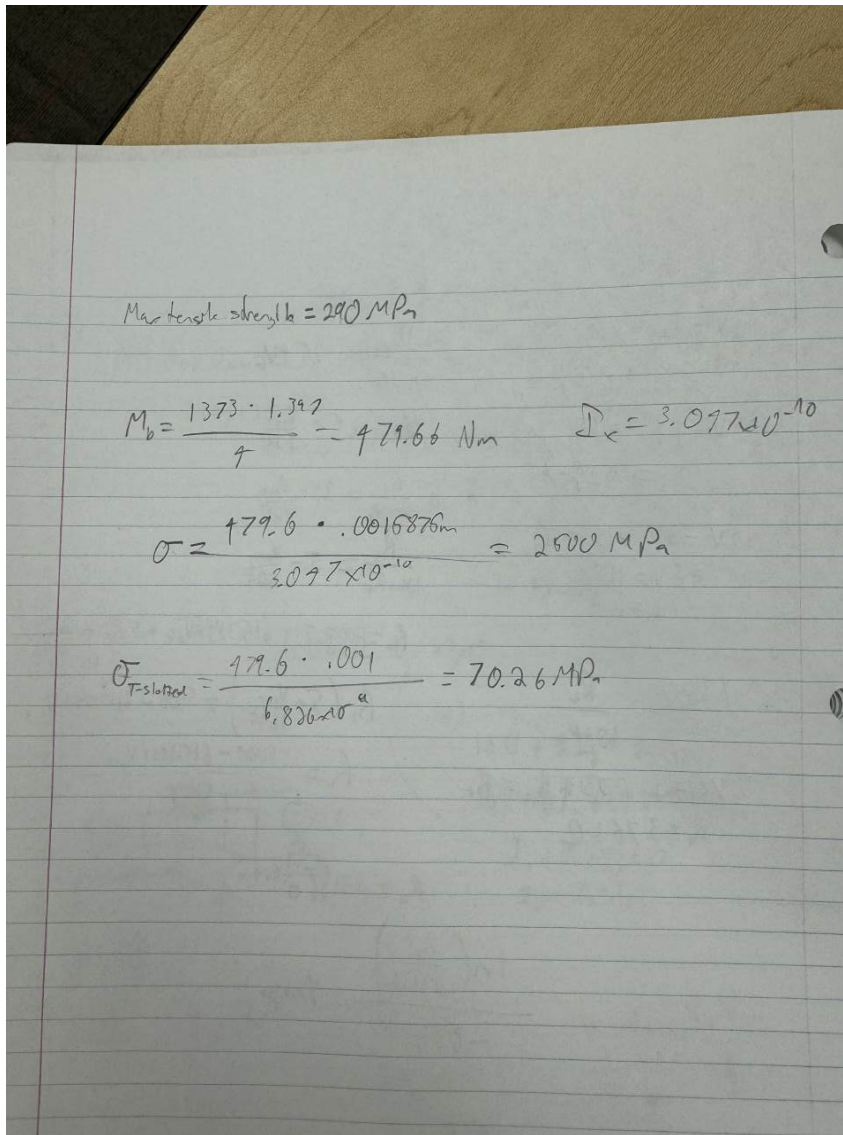 Max tensile strength = 290 MPa
M_b = (1373 · 1.397)/4 = 479.66 Nm    I_x = 3.097x10^-10
σ = (479.6 · .0015875m)/(3.097x10^-10) = 2500 MPa
σ_T-slotted = (479.6 · .001)/(6.826x10^-9) = 70.26 MPa